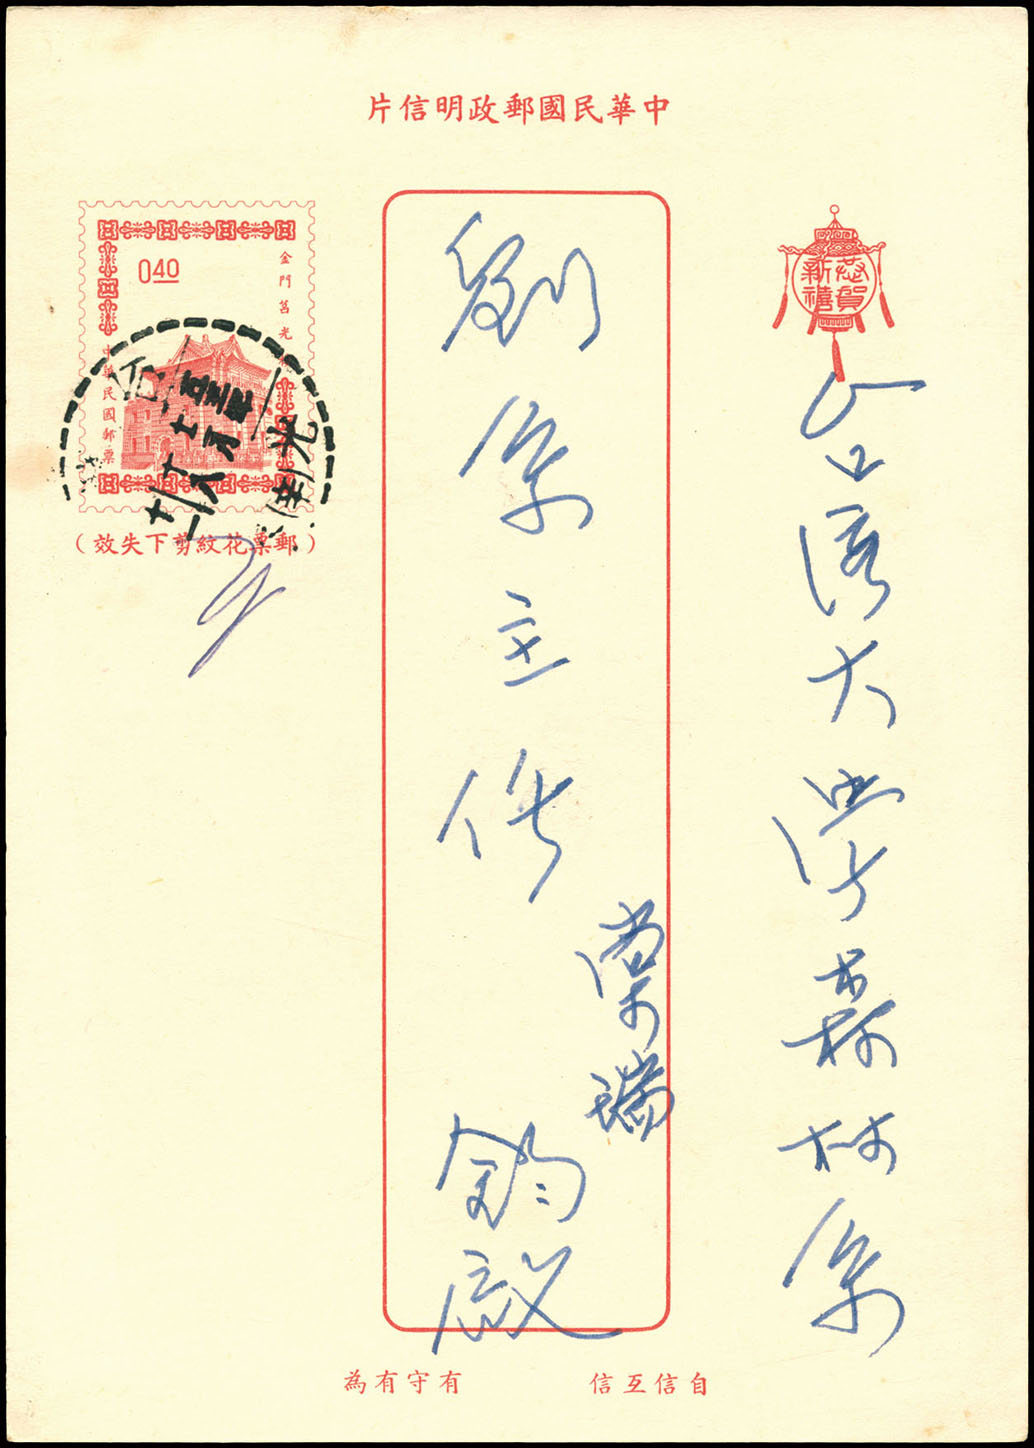 中華民國郵政明信片
恭賀
新禧
台灣大學森林系
劉系主任
棠瑞
鈞啟
0.40
金門莒光
中華民國郵票
(郵票花紋剪下失效)
自信互信
有守有為